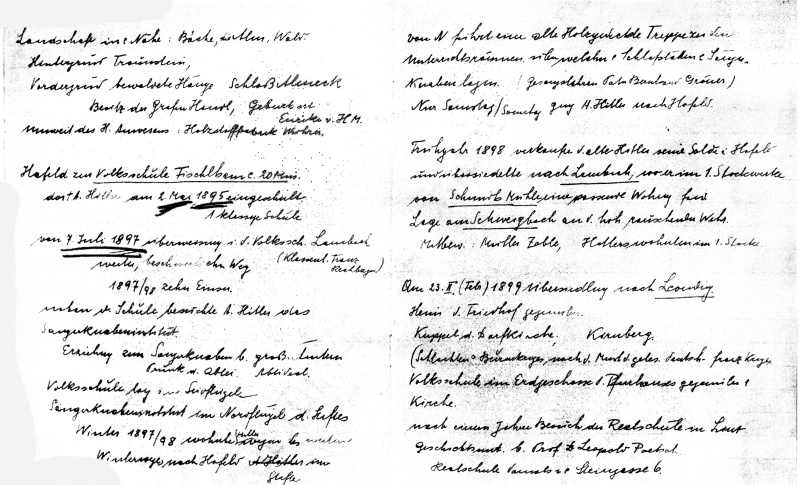 Landschaft in d. Nähe: Bäche, Wald
Hintergrund Traunstein,
Vordergrund bewaldete Hänge Schloß Almeck
Besitz der Grafen Handl, Geburtsort
Enrika v. H M.
unweit des H. Anwesens: Holzstoffabrik
Hafeld zur Volksschule Fischlham c. 20 Min.
dort A. Hitler am 2. Mai 1895 eingeschult
1 klassige Schule
von 7. Juli 1897 Überweisung i. d. Volkssch. Lambach
weiter, beschwerlicher Weg (Klassenl. Franz
1897/98 zehn Einser.
neben der Schule besuchte A. Hitler das
Sängerknabeninstitut.
Erziehung zum Sängerknaben b. groß.
Prunk d. Abtei.
Volksschule lag im Südflügel
Sängerknabeninstitut im Nordflügel d. Stiftes
Winter 1897/98 wohnte Hitler wegen des weiten
Winterweges nach Hafeld A Hitler im
Stifte
von N führt eine alte Holzgedeckte Treppe zu den
Unterrichtsräumen, neben welchen d. Schlafsäle d. Sänger-
Knaben lagen. (Gesangslehrer Pater Bernhard Gröner)
Nur Samstag/Sonntag ging A. Hitler nach Hafeld.
Frühjahr 1898 verkaufte d. alte Hitler seine Sölde i Hafeld
und übersiedelte nach Lambach, wo er im 1. Stockwerke
von Schmidt Mühle eine passende Wohng fand
Lage am Schwaigbach an d. hoh. rauschenden Wehr.
Mitbew: Müller Zoble, Hitlers wohnten im 1. Stocke.
Am 23. II. (Feb) 1899 Übersiedlung nach Leonding.
Heim d. Friedhof gegenüber
Kuppel d. Dorfkirche. Kürnberg.
(Schlachten d. Burenkrieges, nach d. Deutsch-franz Krieges
Volksschule im Erdgeschosse d. Pfarrhauses gegenüber d
Kirche.
nach einem Jahre Besuch der Realschule in Linz
Geschichtsunt. b. Prof Dr Leopold Poetsch
Realschule damals i. d. Steingasse 6.